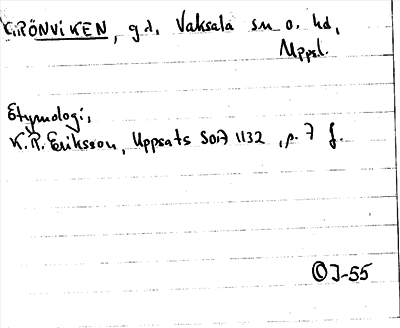 KRÖNVIKEN, gd, Vaksala sn o. hd,
Uppl.
Etymologi,
K.R. Eriksson, Uppsats SOI 1132, p. 7 f.
©J-55